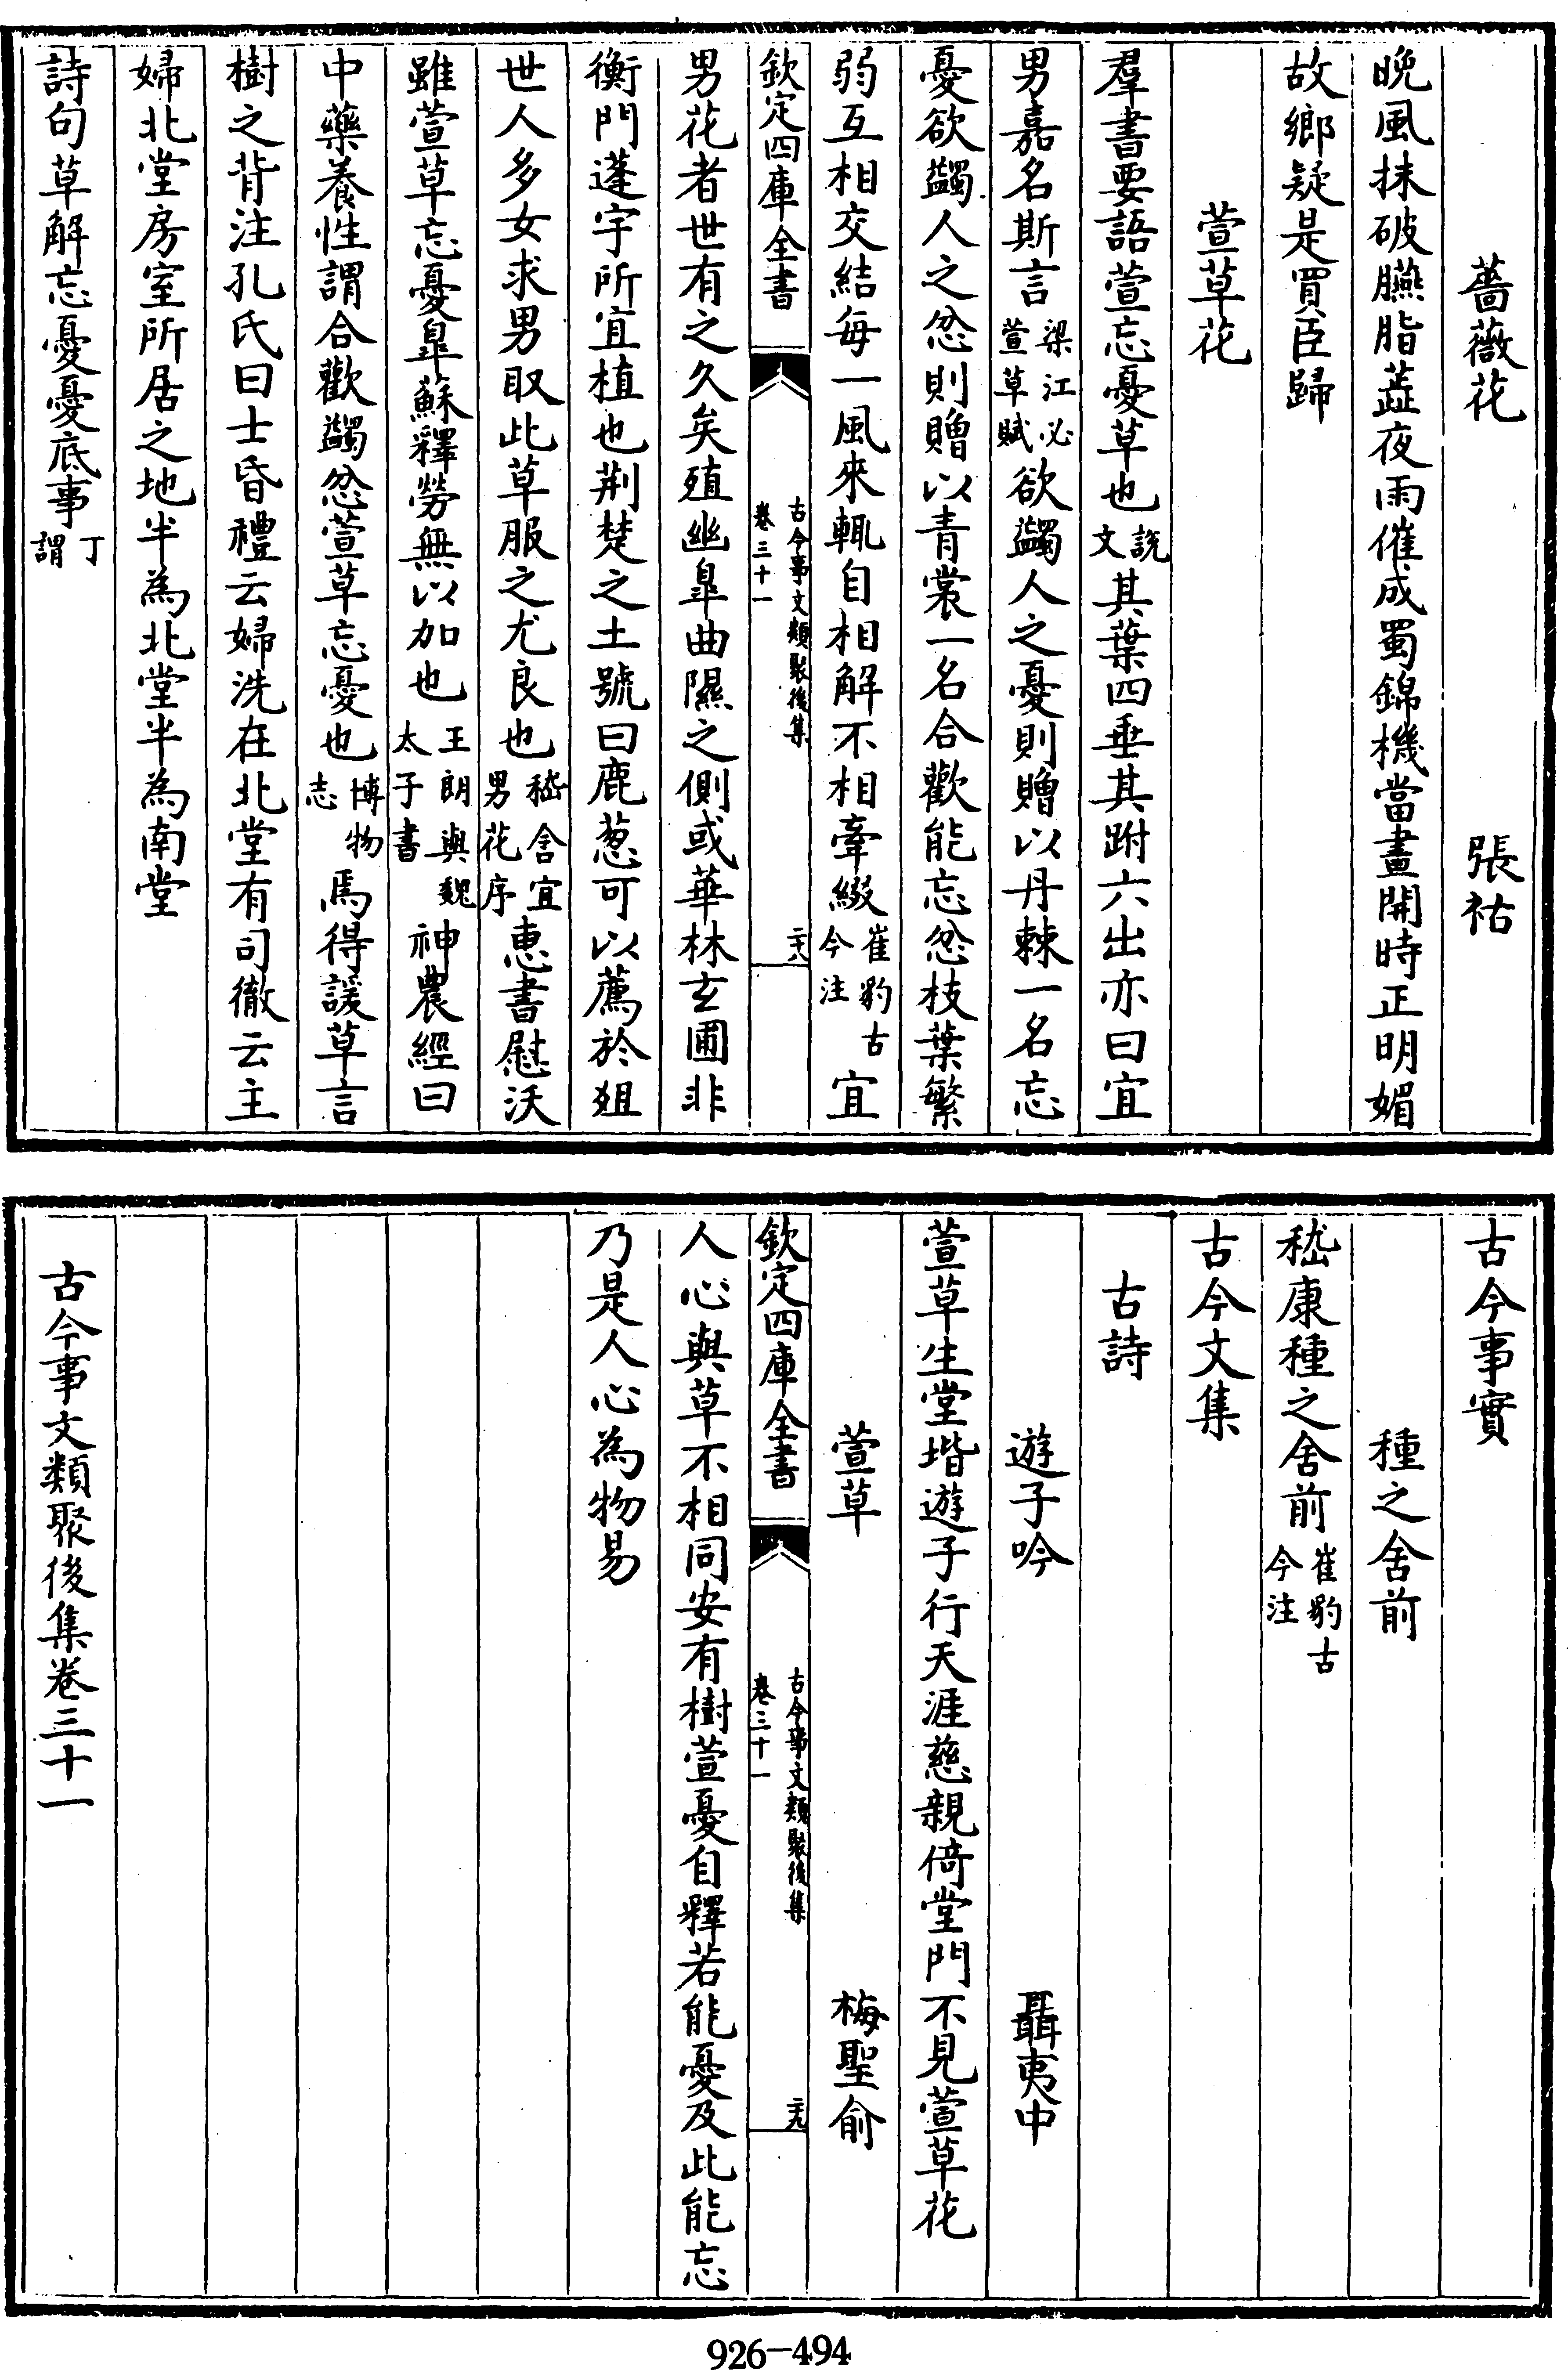 薔薇花　張祜
晚風抹破臙脂蘂夜雨催成蜀錦機當晝開時正明媚
故鄉疑是買臣歸
萱草花
羣書要語萱忘憂草也說文其葉四垂其跗六出亦曰宜
男嘉名斯言梁江必萱草賦欲蠲人之憂則贈以丹棘一名忘
憂欲蠲人之忿則贈以青裳一名合歡能忘忿枝葉繁
弱互相交結每一風來輒自相解不相牽綴崔豹古今注宜
欽定四庫全書　古今事文類聚後集卷三十一　二十八
男花者世有之久矣殖幽臯曲隰之側或華林玄圃非
衡門蓬宇所宜植也荆楚之土號曰鹿葱可以薦於爼
世人多女求男取此草服之尤良也嵇含宜男花序惠書慰沃
雖萱草忘憂臯蘇釋勞無以加也王朗與魏太子書神農經曰
中藥養性謂合歡蠲忿萱草忘憂也博物志焉得諼草言
樹之背注孔氏曰士昏禮云婦洗在北堂有司徹云主
婦北堂房室所居之地半為北堂半為南堂
詩句草解忘憂憂底事丁謂
古今事實
種之舍前
嵇康種之舍前崔豹古今注
古今文集
古詩
遊子吟　聶夷中
萱草生堂堦遊子行天涯慈親倚堂門不見萱草花
萱草　梅聖俞
欽定四庫全書　古今事文類聚後集卷三十一　二十九
人心與草不相同安有樹萱憂自釋若能憂及此能忘
乃是人心為物易
古今事文類聚後集卷三十一
926-494